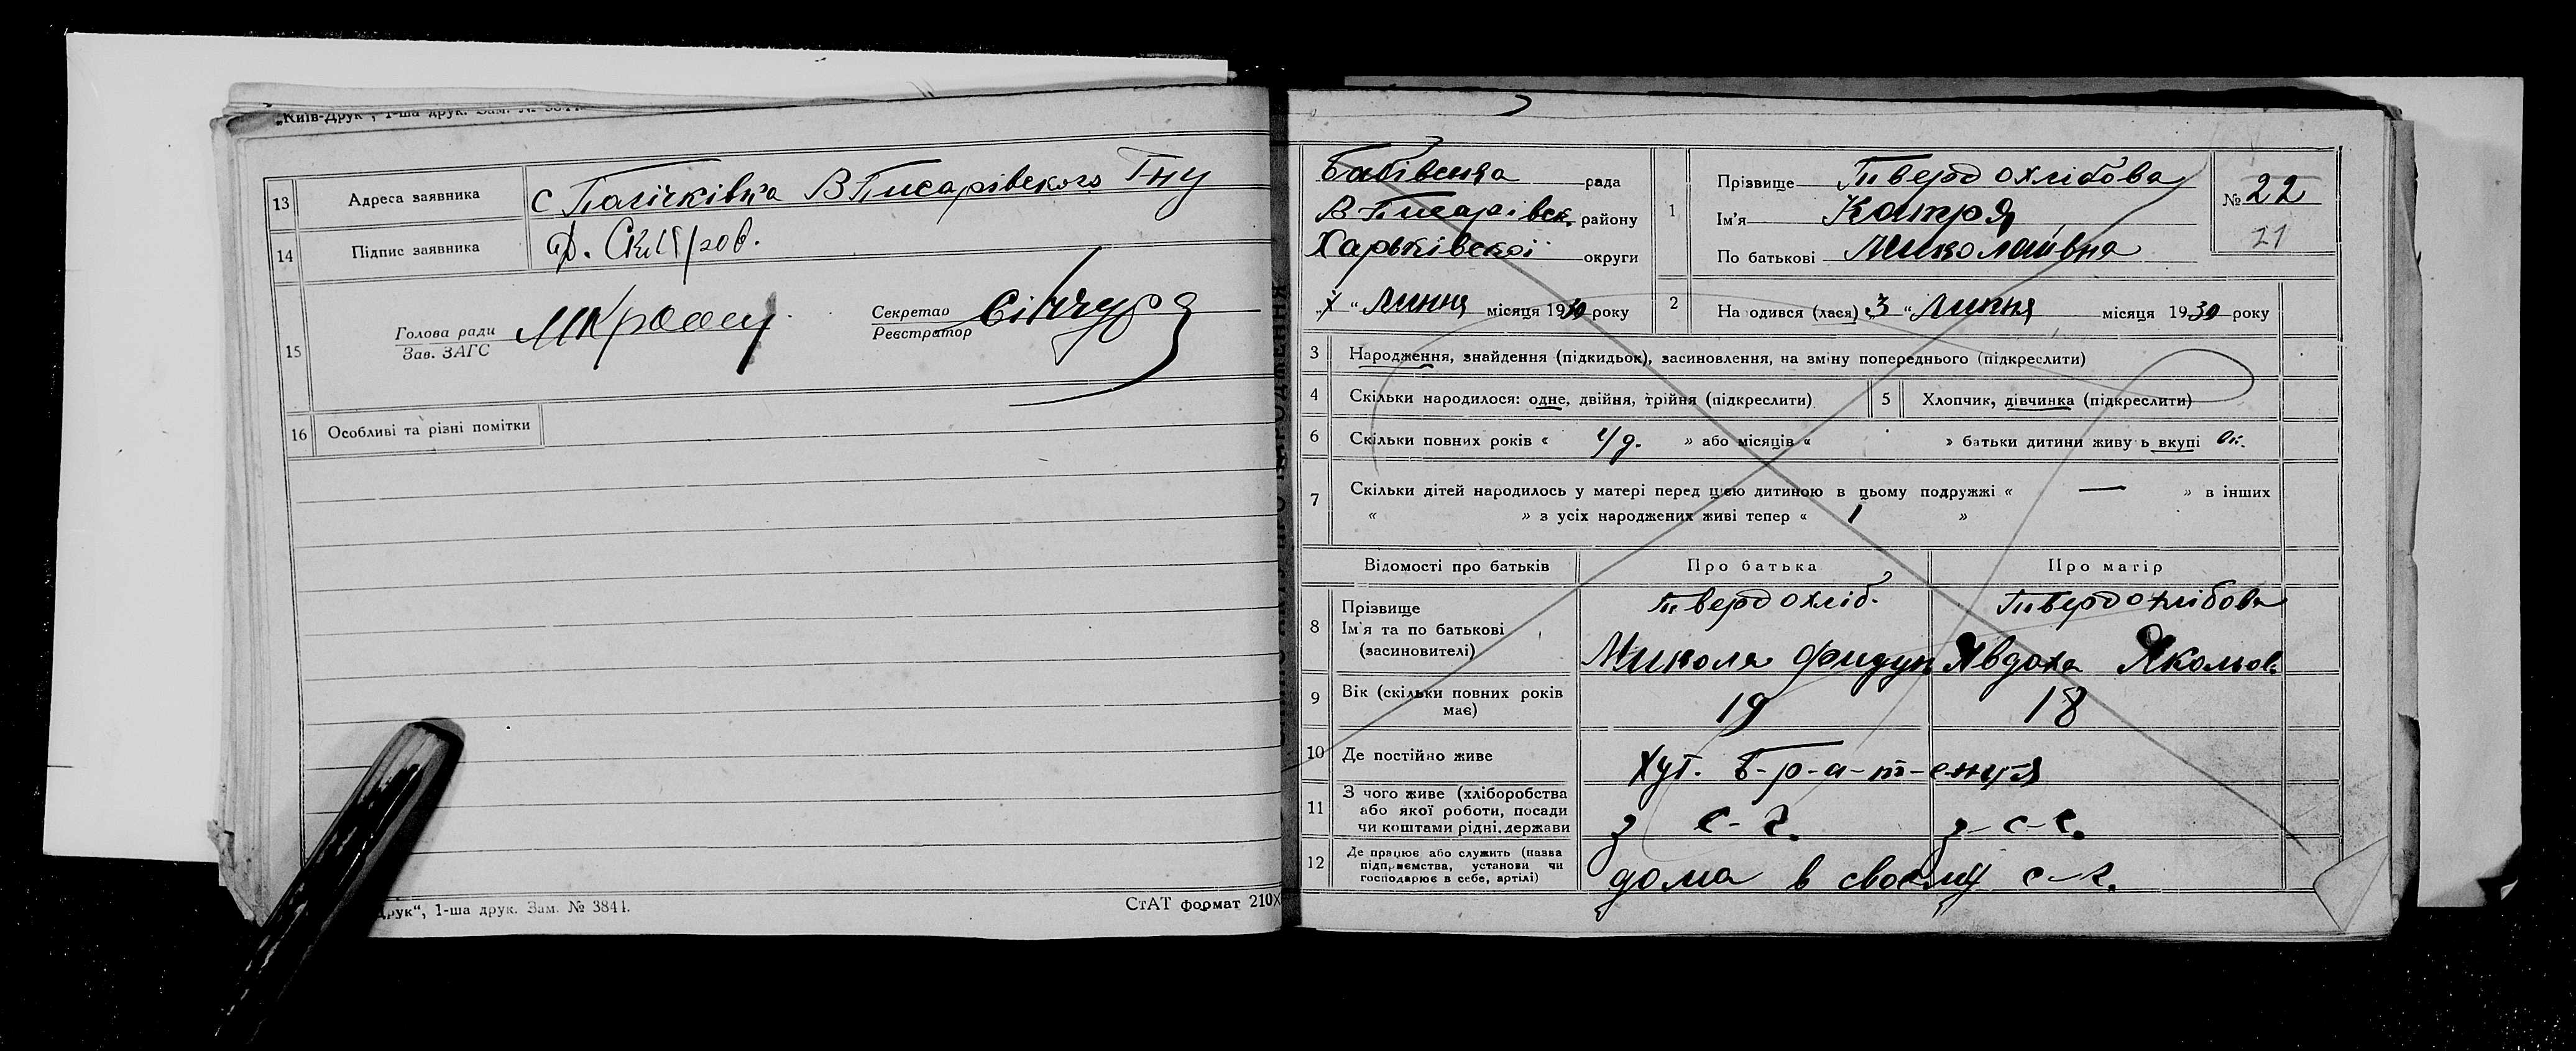 „Київ-Друк", 1-ша друк. Зам. №
13 Адреса заявника с В Писарівского
14 Підпис заявника
15 Голова ради
Зав. ЗАГС
Секретар
Реєстратор
16 Особливі та різні помітки
Друк", 1-ша друк. Зам. № 3841.
СтАТ формат 210X
Бабівська рада
В Писарівск. району
Харьківскої округи
„ " Липня місяця 1930 року
1 Прізвище Твердохлібова
Ім'я Катря
По батькові Миколаівна
№ 22
21
2 Народився (лася) „3" Липня місяця 1930 року
3 Народження, знайдення (підкидьок), засиновлення, на зміну попереднього (підкреслити)
4 Скільки народилося: одне, двійня, трійня (підкреслити)
5 Хлопчик, дівчинка (підкреслити)
6 Скільки повних років « » або місяців « » батьки дитини живуть вкупі
7 Скільки дітей народилось у матері перед цією дитиною в цьому подружжі « — » в інших
« » з усіх народжених живі тепер « 1 »
Відомості про батьків Про батька Про матір
8 Прізвище
Ім'я та по батькові
(засиновителі)
Твердохліб. Твердохлібова
Микола Явдоха
9 Вік (скільки повних років має) 19 18
10 Де постійно живе Хут.
11 З чого живе (хліборобства
або якої роботи, посади
чи коштами рідні, держави
з с-г. з-с-г.
12 Де працює або служить (назва
підприємства, установи чи
господарює в себе, артілі)
дома в своєму с-г.